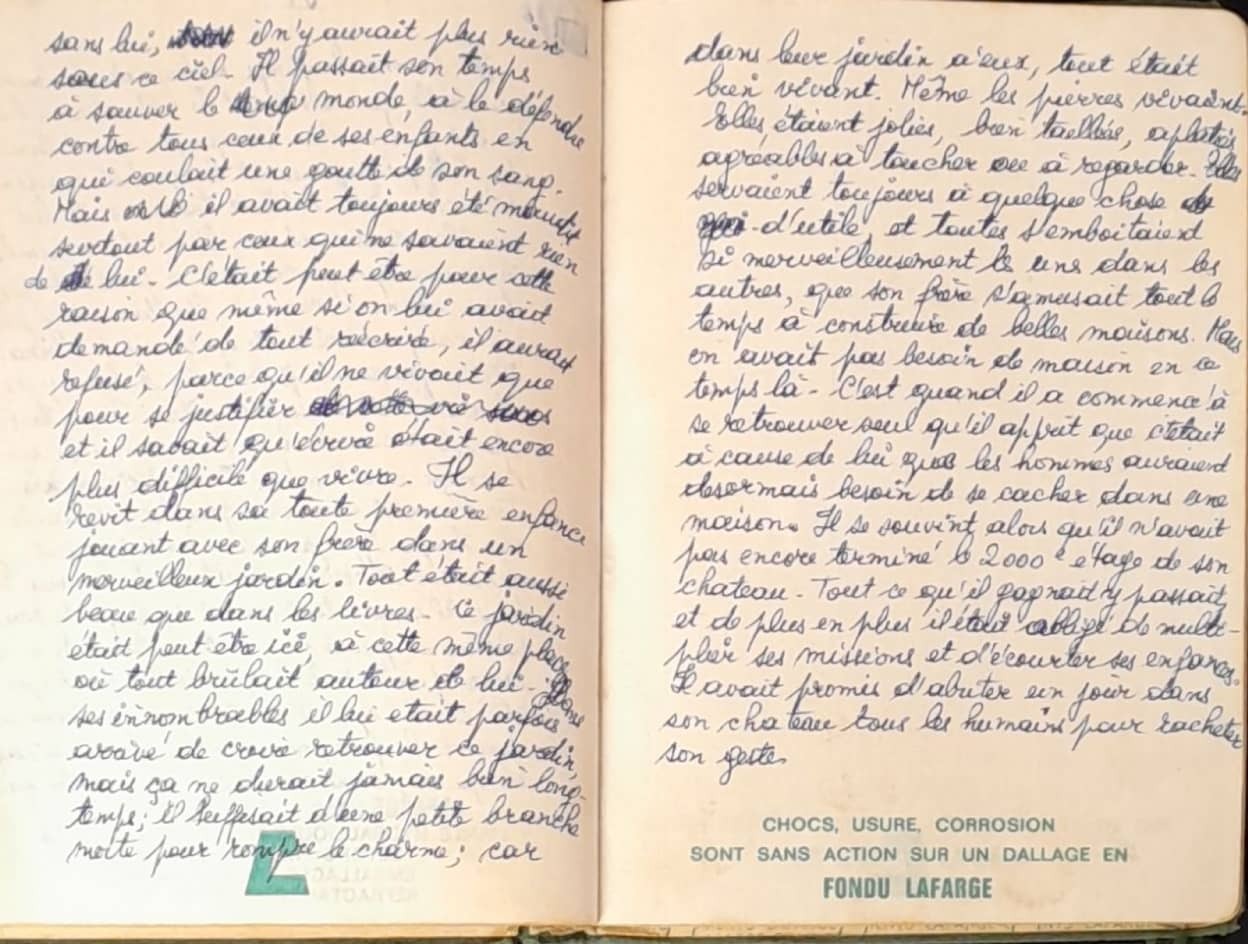 sans lui, il n'y aurait plus rien
sous ce ciel. Il passait son temps
à sauver le monde, à le défendre
contre tous ceux de ses enfants en
qui coulait une goutte de son sang.
Mais il avait toujours été maudit
surtout par ceux qui ne savaient rien
de lui. C'était peut être pour cette
raison que même si on lui avait
demandé de tout réécrire, il aurait
refusé, parce qu'il ne vivait que
pour se justifier
et il savait qu'écrire était encore
plus difficile que vivre. Il se
revit dans sa toute première enfance
jouant avec son frère dans un
merveilleux jardin. Tout était aussi
beau que dans les livres. Ce jardin
était peut être ici, à cette même place
où tout brûlait autour de lui. Dans
ses innombrables il lui etait parfois
arrivé de croire retrouver ce jardin,
mais ça ne durait jamais bien long-
temps; il suffisait d'une petite branche
morte pour rompre le charme; car
dans leur jardin à eux, tout était
bien vivant. Même les pierres vivaient.
Elles étaient jolies, bien taillées, aplaties
agréables à toucher ou à regarder. Elles
servaient toujours à quelque chose
d'utile, et toutes s'emboitaient
si merveilleusement les uns dans les
autres, que son frère s'amusait tout le
temps à construire de belles maisons. Mais
on avait pas besoin de maison en ce
temps là. C'est quand il a commencé à
se retrouver seul qu'il apprit que c'était
à cause de lui que les hommes auraient
desormais besoin de se cacher dans une
maison. Il se souvint alors qu'il n'avait
pas encore terminé le 2000e étage de son
chateau. Tout ce qu'il gagnait y passait,
et de plus en plus il était obligé de multi-
plier ses missions et d'écourter ses enfances.
Il avait promis d'abriter un jour dans
son chateau tous les humains pour racheter
son geste.
CHOCS, USURE, CORROSION
SONT SANS ACTION SUR UN DALLAGE EN
FONDU LAFARGE